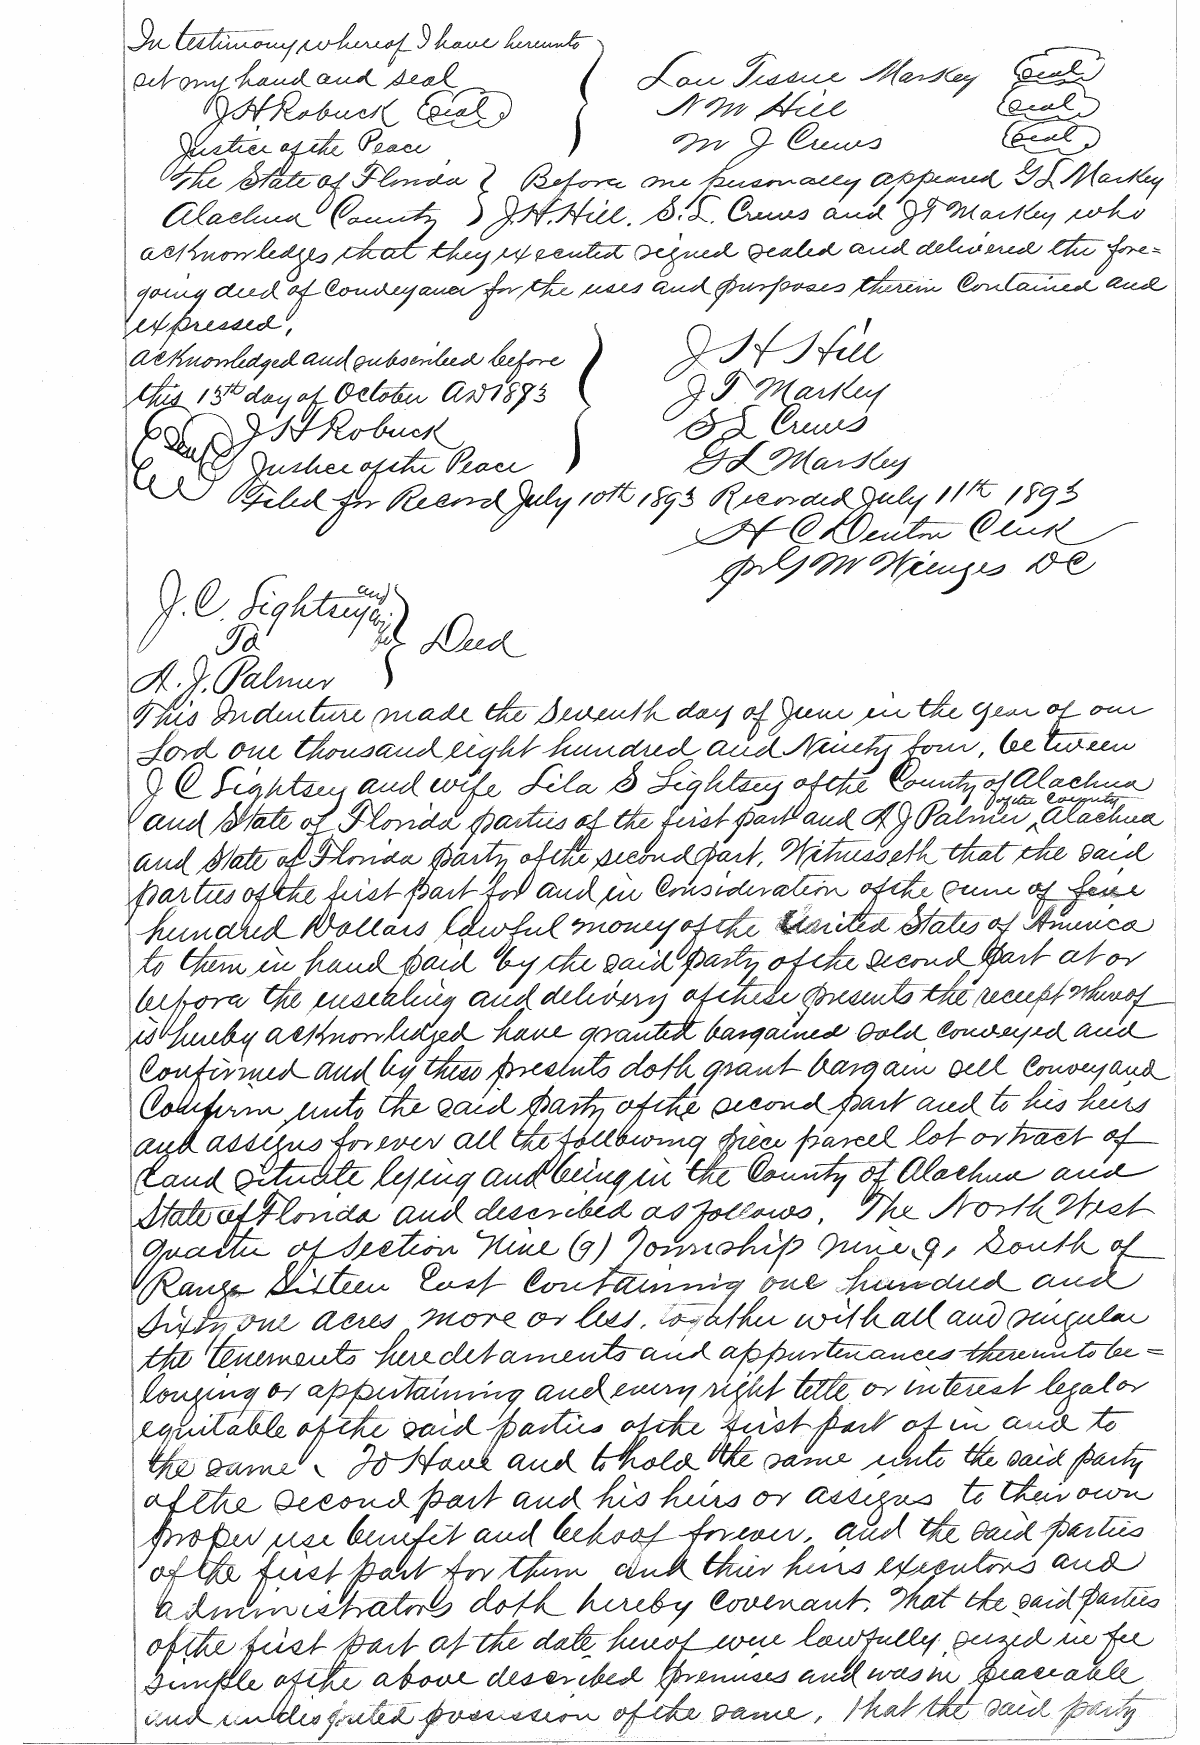 In testimony whereof I have hereunto
set my hand and seal
J H Robuck (Seal)
Justice of the Peace
Lou Tissue Markey (Seal)
N M Hill (Seal)
M J Crews (Seal)
The State of Florida } Before me personally appeared G L Markey
Alachua County } J. H. Hill. S. L. Crews and J T Markey who
acknowledges that they executed signed sealed and delivered the fore=
going deed of Conveyance for the uses and purposes therein Contained and
expressed.
acknowledged and subscribed before
this 13th day of October AD 1893
(Seal) J H Robuck
Justice of the Peace
J H Hill
J T Markey
S L Crews
G L Markey
Filed for Record July 10th 1893 Recorded July 11th 1893
H C Denton Clerk
M Wienges DC
J. C. Lightsey and
To
A. J. Palmer
} Deed
This Indenture made the Seventh day of June in the year of our
Lord one thousand eight hundred and Ninety four, between
J C Lightsey and wife Lila S Lightsey of the County of Alachua
and State of Florida parties of the first part and A J Palmer of the County Alachua
and State of Florida party of the second part. Witnesseth that the said
parties of the first part for and in Consideration of the sum of five
hundred Dollars lawful money of the United States of America
to them in hand paid by the said party of the second part at or
before the ensealing and delivery of these presents the receipt whereof
is hereby acknowledged have granted bargained sold conveyed and
Confirmed and by these presents doth grant bargain sell convey and
Confirm unto the said party of the second part and to his heirs
and assigns forever all the following piece parcel lot or tract of
Land situate lying and being in the County of Alachua and
State of Florida and described as follows. The North West
quarter of Section Nine (9) Township nine, 9, South of
Range Sixteen East Containing one hundred and
Sixty one acres more or less. together with all and singular
the tenements heredetaments and appurtenances thereunto be=
longing or appertaining and every right title or interest legal or
equitable of the said parties of the first part of in and to
the same. To Have and to hold the same unto the said party
of the second part and his heirs or assigns to their own
proper use benefit and behoof forever. and the said parties
of the first part for them and thier heirs executors and
administrators doth hereby covenant. That the said parties
of the first part at the date hereof were lawfully seized in fee
simple of the above described premises and was in peaceable
and undisputed possession of the same. That the said party